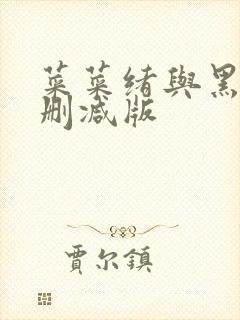 菜菜绪與黑
删减版
賈尔鎮